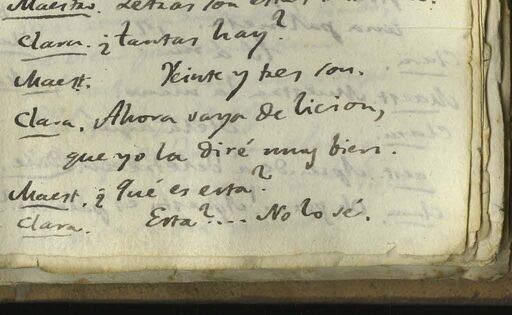 Maestro. Letras son estas
Clara. ¿tantas hay?
Maest. Veinte y tres son.
Clara. Ahora vaya de licion,
que yo la diré muy bien.
Maest. ¿Qué es esta?
Clara. Esta?... No lo sé.